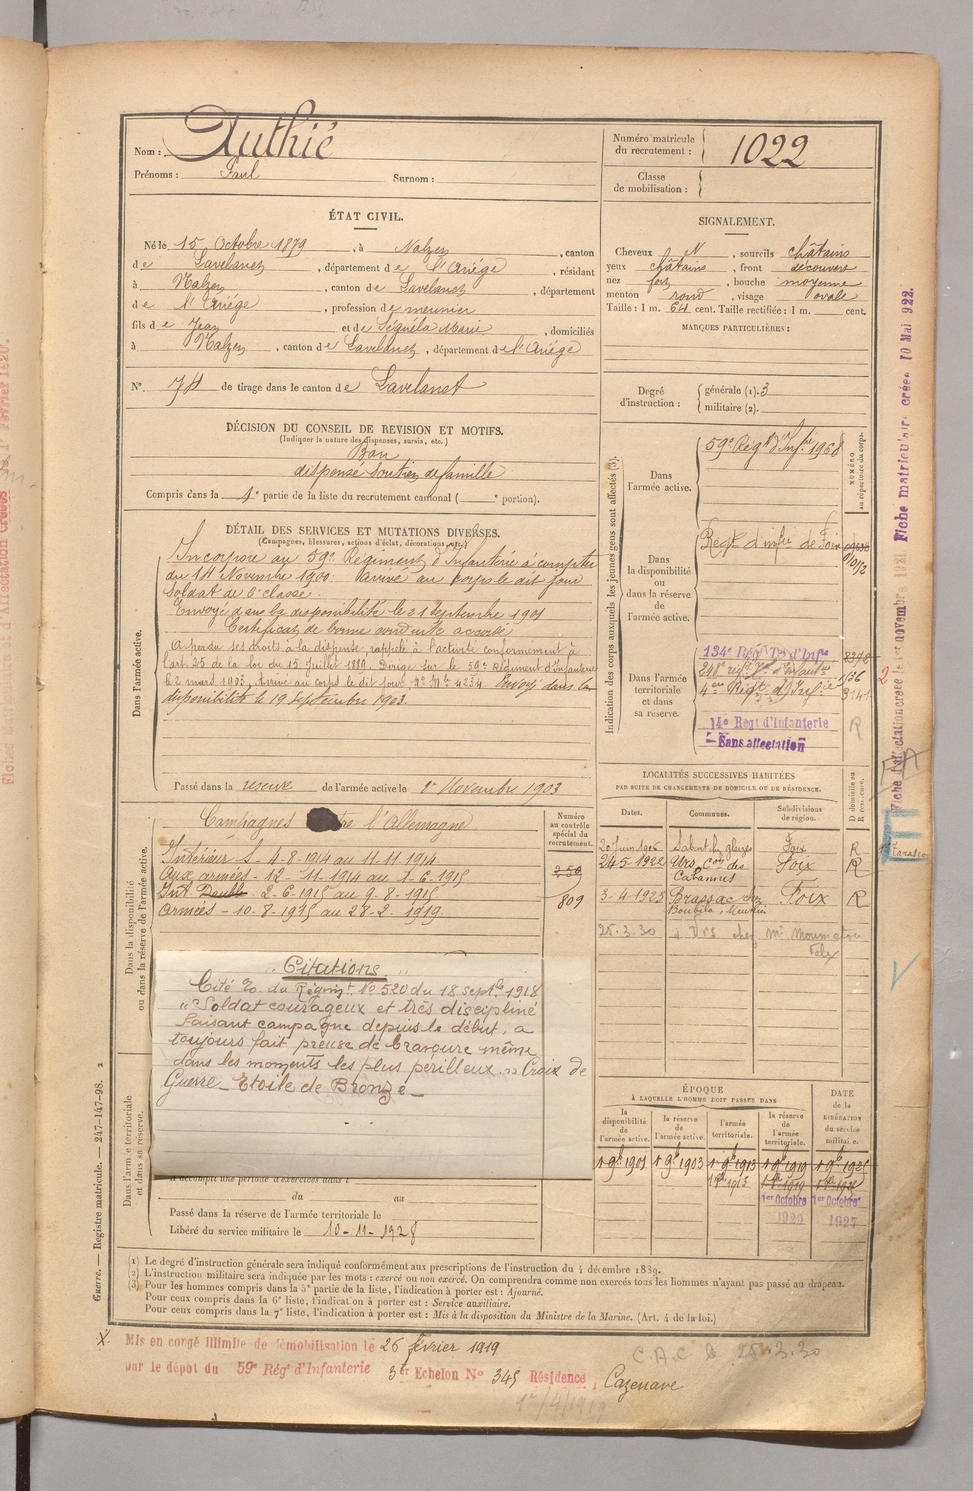 Nom : Authié
Prénoms : Paul Surnom :
Numéro matricule du recrutement : 1022
Classe de mobilisation :
ÉTAT CIVIL.
Né le 15 Octobre 1879, à Nalzen, canton
de Lavelanet, département de l'Ariège, résidant
à Nalzen, canton de Lavelanet, département
de l'Ariège, profession de meunier
fils de Jean et de Séguéla Marie, domiciliés
à Nalzen, canton de Lavelanet, département de l'Ariège
N° 74 de tirage dans le canton de Lavelanet
SIGNALEMENT.
Cheveux N, sourcils châtains
yeux châtains, front découvert
nez fort, bouche moyenne
menton rond, visage ovale
Taille : 1 m. 64 cent. Taille rectifiée : 1 m. cent.
MARQUES PARTICULIÈRES :
Degré d'instruction : générale (1). 3
militaire (2).
DÉCISION DU CONSEIL DE REVISION ET MOTIFS.
(Indiquer la nature des dispenses, sursis, etc.)
Bon
dispensé soutien de famille
Compris dans la 1e partie de la liste du recrutement cantonal ( e portion).
DÉTAIL DES SERVICES ET MUTATIONS DIVERSES.
(Campagnes, blessures, actions d'éclat, décorations, etc.)
Dans l'armée active.
Incorporé au 59e Régiment d'Infanterie à compter
du 14 Novembre 1900. Arrivé au corps le dit jour
Soldat de 2e classe.
Envoyé dans la disponibilité le 21 septembre 1901
Certificat de bonne conduite accordé
A perdu ses droits à la dispense, rappelé à l'activité conformément à
l'art. 25 de la loi du 15 Juillet 1889. Dirigé sur le 59e Régiment d'Infanterie
le 2 mars 1903. Arrivé au corps le dit jour. No Mle 4234. Envoyé dans la
disponibilité le 19 Septembre 1903.
Passé dans la réserve de l'armée active le 1er Novembre 1903
Indication des corps auxquels les jeunes gens sont affectés (3).
NUMÉRO au répertoire du corps.
Dans l'armée active.
59e Régt d'Infie 1968
Dans la disponibilité ou dans la réserve de l'armée active.
Régt d'infie de Foix
Dans l'armée territoriale et dans sa réserve.
134e Régt Tal d'Infie
4me Régt d'Infie
14e Régt d'Infanterie
Sans affectation
R
Dans la disponibilité ou dans la réserve de l'armée active.
Campagnes contre l'Allemagne
Intérieur S - 4-8-1914 au 11-11-1914
Aux armées - 12-11-1914 au 1-6-1915
Int. Double 2-6-1915 au 9-8-1915
Armées - 10-8-1915 au 28-2-1919
Numéro au contrôle spécial du recrutement.
250
809
" Citations "
Cité O. du Régimt No 520 du 18 septbre 1918
"Soldat courageux et très discipliné
Faisant campagne depuis le début, a
toujours fait preuse de bravoure même
dans les moments les plus périlleux." Croix de
Guerre - Etoile de Bronze -
LOCALITÉS SUCCESSIVES HABITÉES
PAR SUITE DE CHANGEMENTS DE DOMICILE OU DE RÉSIDENCE.
Dates. Communes. Subdivisions de région. D domicile ou R résidence.
Foix R
24-5-1922 Urs, Con des Cabannes Foix R
3-4-1923 Brassac Foix R
25-3-30 à Urs chez Mr
Dans l'armée territoriale et dans sa réserve.
A accompli une période d'exercices dans l
du au
Passé dans la réserve de l'armée territoriale le
Libéré du service militaire le 10-11-1928
ÉPOQUE
À LAQUELLE L'HOMME DOIT PASSER DANS
la disponibilité de l'armée active. la réserve de l'armée active. l'armée territoriale. la réserve de l'armée territoriale.
DATE de la LIBÉRATION du service militaire.
1er 9bre 1901 1er 9bre 1903 1er 9bre 1913 1er 9bre 1919 1er 9bre 1925
1er Octobre 1er Octobre
1927
(1) Le degré d'instruction générale sera indiqué conformément aux prescriptions de l'instruction du 4 décembre 1889.
(2) L'instruction militaire sera indiquée par les mots : exercé ou non exercé. On comprendra comme non exercés tous les hommes n'ayant pas passé au drapeau.
(3) Pour les hommes compris dans la 5e partie de la liste, l'indication à porter est : Ajourné.
Pour ceux compris dans la 6e liste, l'indication à porter est : Service auxiliaire.
Pour ceux compris dans la 7e liste, l'indication à porter est : Mis à la disposition du Ministre de la Marine. (Art. 4 de la loi.)
Guerre. — Registre matricule. — 247-147-98.
Mis en congé illimité de démobilisation le 26 février 1919
par le dépôt du 59e Régt d'Infanterie 3er Echelon No 345 Résidence, Cazenave
C.A.C. le 25.3.30
Fiche matriculaire créée 10 Mai 922.